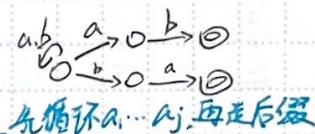 a,b a b
b a
先循环a,… aj,再走后缀